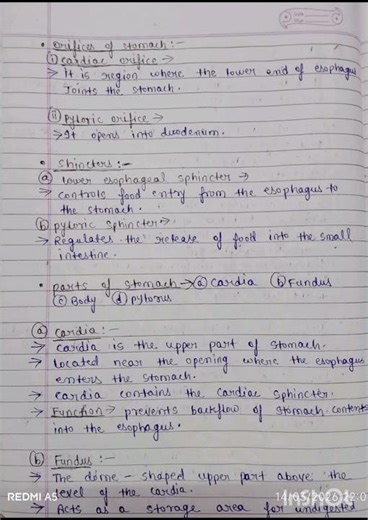 • Orifices of stomach :-
(i) Cardiac orifice →
→ It is region where the lower end of esophagus
Joints the stomach.
(ii) Pyloric orifice →
→ It opens into duodenum.
• Shincters :-
(a) Lower esophageal sphincter →
→ controls food entry from the esophagus to
the stomach.
(b) pyloric sphincter →
→ Regulates the release of food into the small
intestine.
• parts of stomach → (a) Cardia (b) Fundus
(c) Body (d) pylorus
(a) Cardia :-
→ Cardia is the upper part of stomach.
→ Located near the opening where the esophagus
enters the stomach.
→ Cardia contains the Cardiac sphincter.
→ Function → prevents backflow of stomach contents
into the esophagus.
(b) Fundus :-
→ The dome - shaped upper part above the
level of the cardia.
→ Acts as a storage area for undigested
REDMI A5